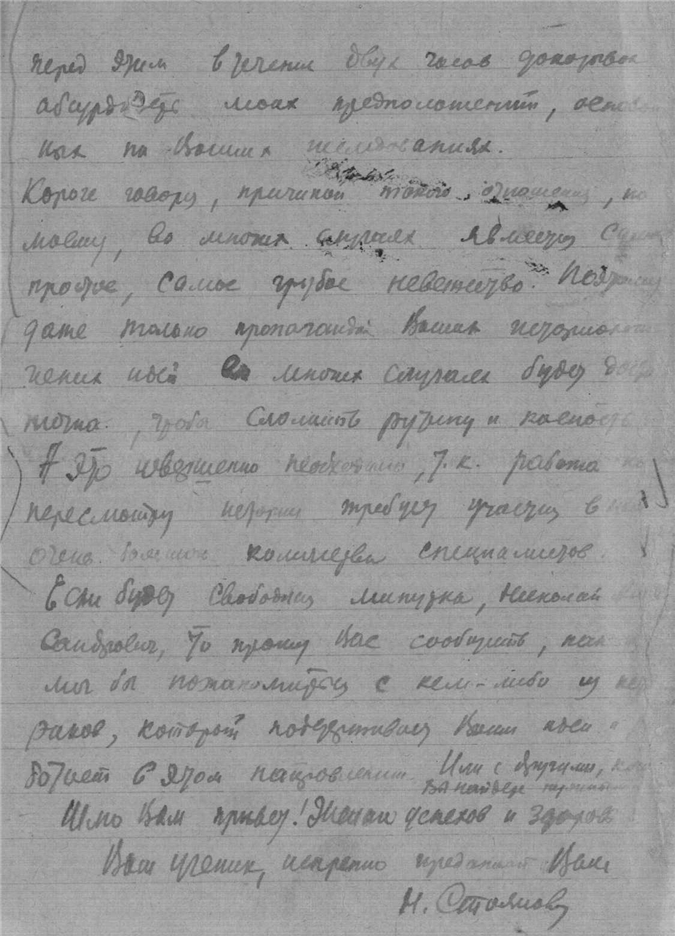 перед этим в течении двух часов доказывал
абсурдность моих предположений, основан
ных на Ваших исследованиях.
Короче говоря, причиной такого отношения, по
моему, во многих случаях является самое
простое, самое грубое невежество. Поэтому
даже только пропаганда Ваших
идей во многих случаях будет доста
точна, чтобы сломить рутину и косность
А это совершенно необходимо, т.к. работа по
пересмотру истории требует участия в ней
очень большого количества специалистов.
Если будет свободная минутка, Николай
сандрович, то прошу Вас сообщить, как
мог бы познакомиться с кем-либо из
который поддерживает Ваши идеи и
ботает в этом направлении Или с другими,
Вы найдете
Шлю Вам привет! Желаю успехов и здоров
Ваш ученик, искренно преданный Вам
Н. Стоянов